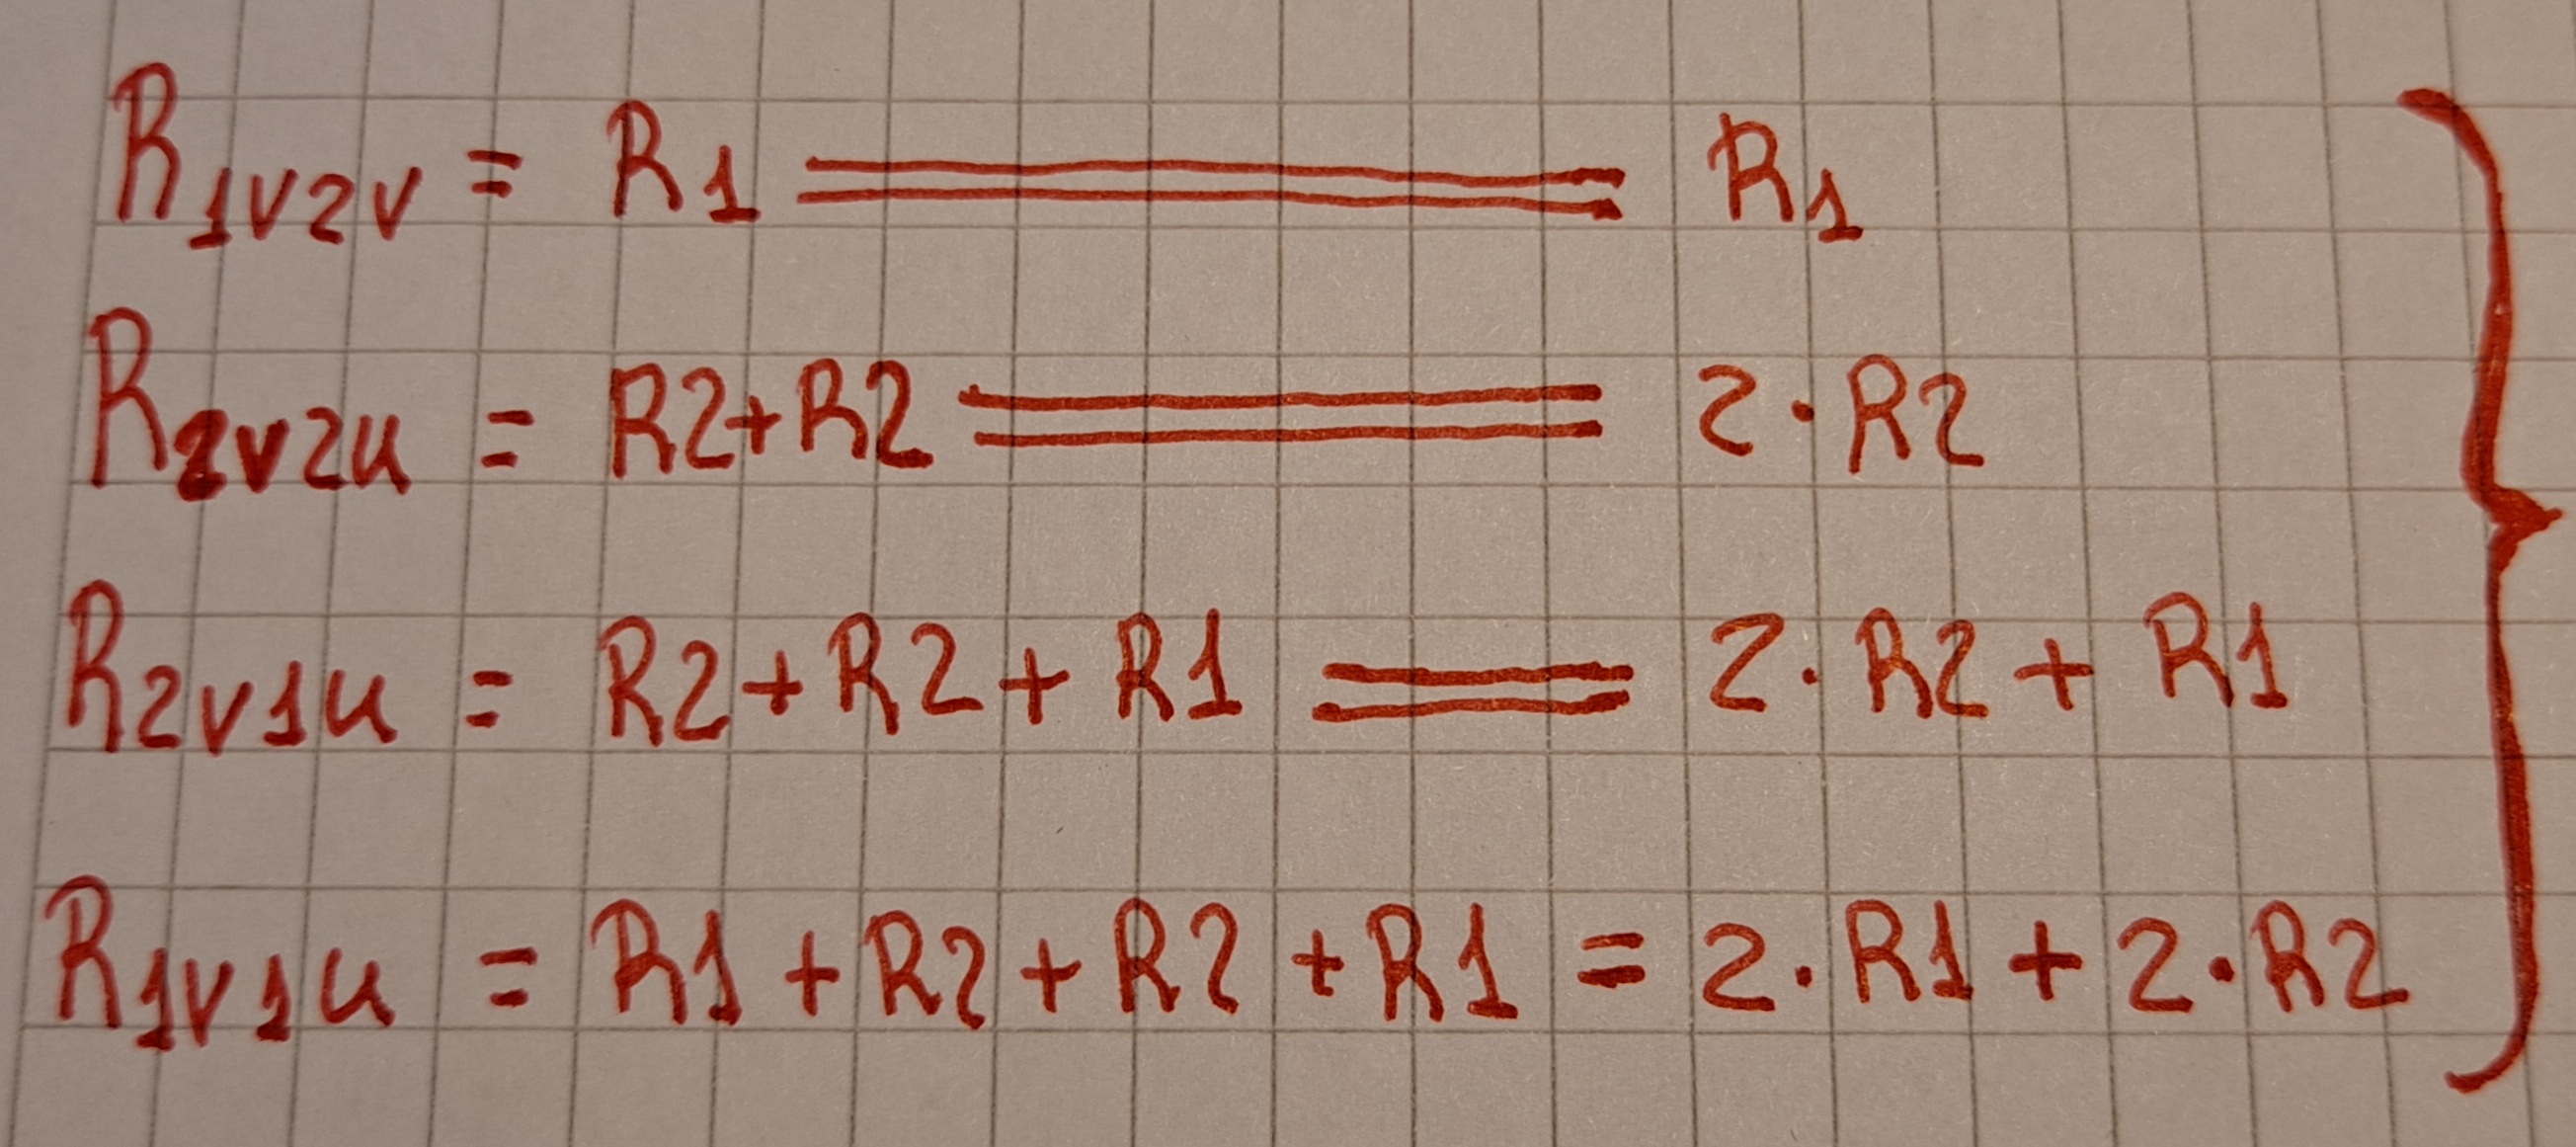 R1v2v = R1 = R1
R2v2u = R2+R2 = 2·R2
R2v1u = R2+R2+R1 = 2·R2+R1
R1v1u = R1+R2+R2+R1 = 2·R1+2·R2